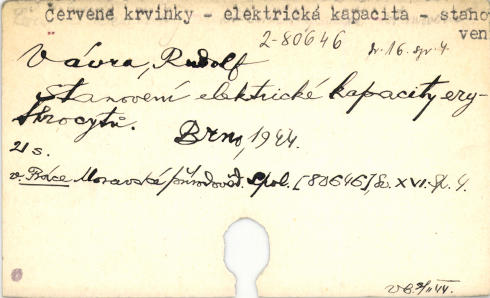 červené krvinky - elektrická kapacita - stano
ven
2-80646
sv. 16. spr. 4.
Vávra, Rudolf
Stanovení elektrické kapacity ery-
throcytů. Brno, 1944.
21 s.
v. Práce Moravské přírodověd. spol. [80646], sv. XVI. sp. 4.